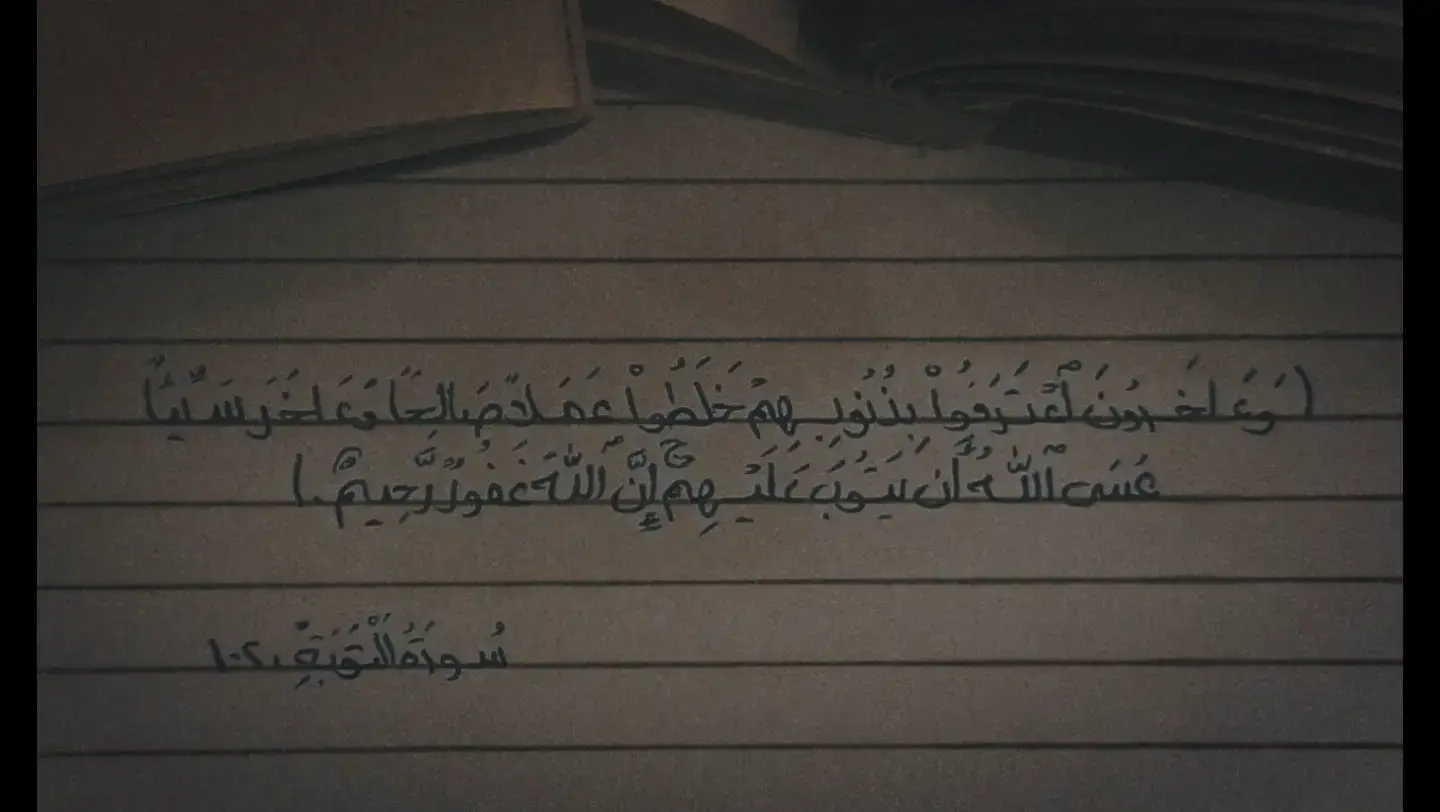 (وَءَاخَرُونَ ٱعۡتَرَفُواْ بِذُنُوبِهِمۡ خَلَطُواْ عَمَلٗا صَٰلِحٗا وَءَاخَرَ سَيِّئًا
عَسَى ٱللَّهُ أَن يَتُوبَ عَلَيۡهِمۡۚ إِنَّ ٱللَّهَ غَفُورٞ رَّحِيمٌ.)
سُورَةُ التَّوۡبَةِ، ١٠٢